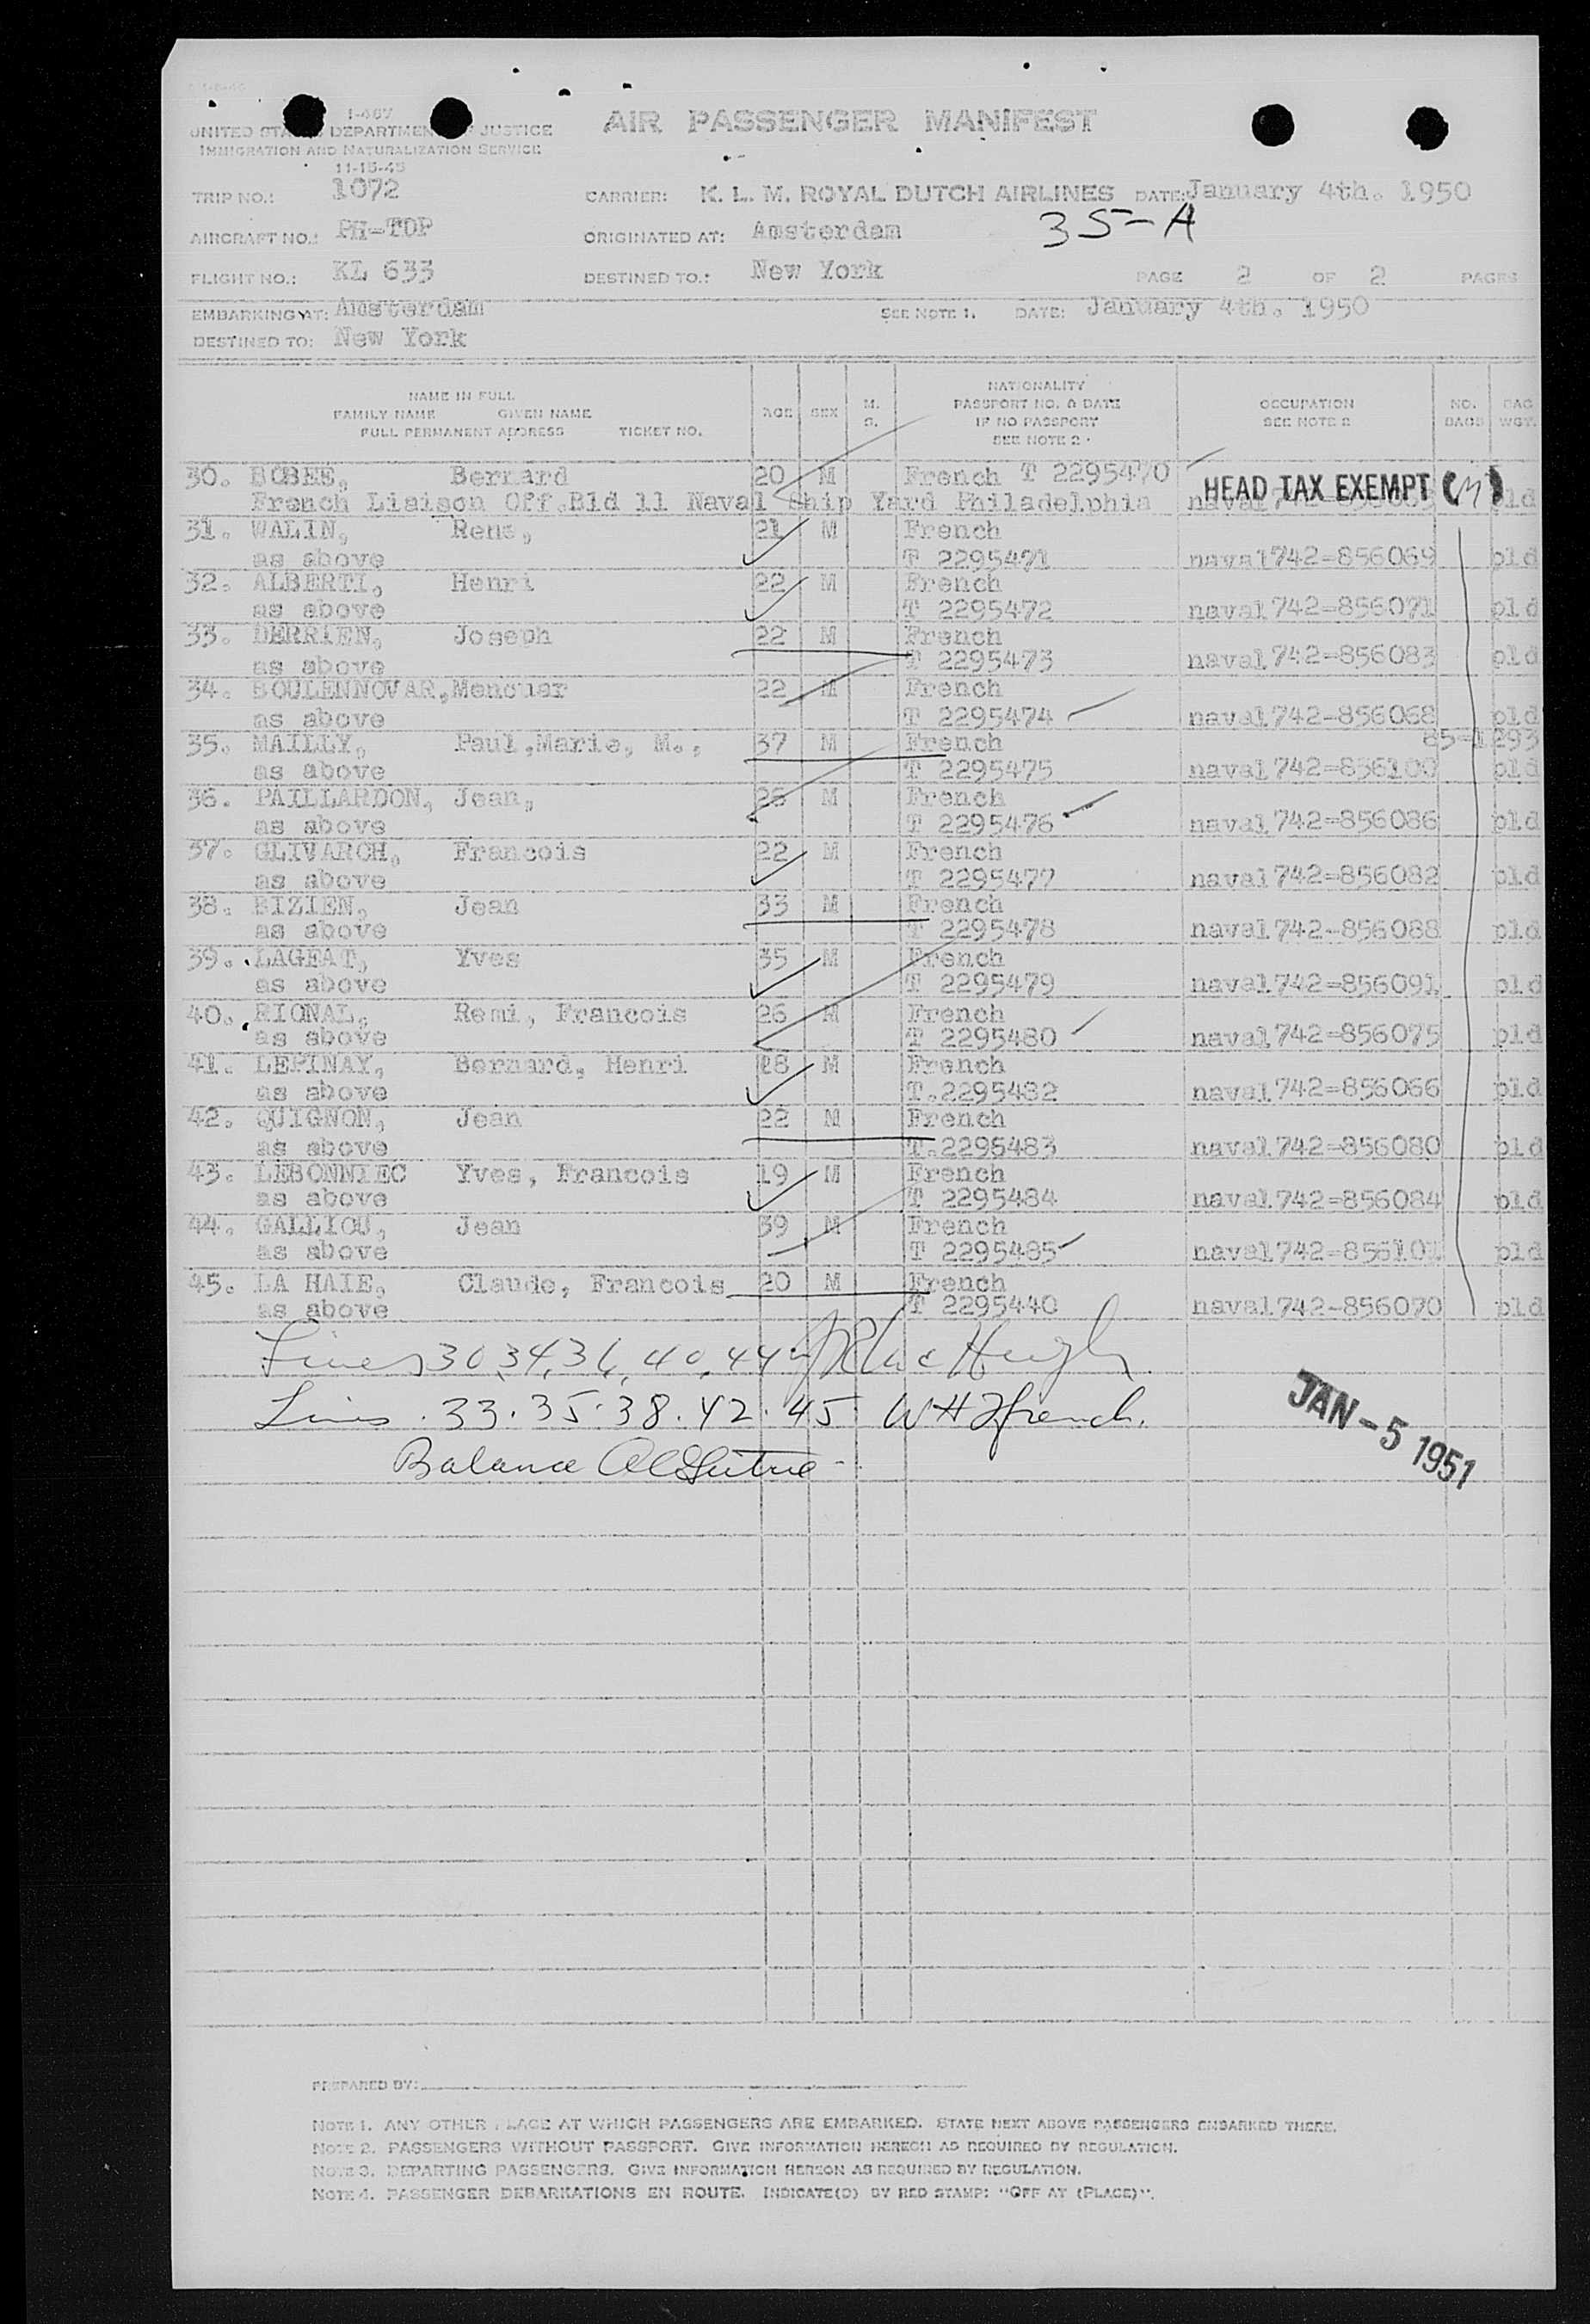 I-467
UNITED STA DEPARTMEN JUSTICE
IMMIGRATION AND NATURALIZATION SERVICE
11-15-45
AIR PASSENGER MANIFEST
TRIP NO.: 1072 CARRIER: K. L. M. ROYAL DUTCH AIRLINES DATE: January 4th. 1950
35-A
AIRCRAFT NO.: PH-TDP ORIGINATED AT: Amsterdam
FLIGHT NO.: KL 633 DESTINED TO.: New York PAGE 2 OF 2 PAGES
EMBARKING AT: Amsterdam SEE NOTE 1. DATE: January 4th. 1950
DESTINED TO: New York
NAME IN FULL
FAMILY NAME GIVEN NAME
FULL PERMANENT ADDRESS TICKET NO.
AGE SEX M. S.
NATIONALITY
PASSPORT NO. & DATE
IF NO PASSPORT
SEE NOTE 2
OCCUPATION
SEE NOTE 2
NO. BAGS
BAG WGT.
30. BOBEE, Bernard 20 M French T 2295470
HEAD TAX EXEMPT (M)
French Liaison Off.Bld 11 Naval Ship Yard Philadelphia naval pld
31. WALIN, Rene, 21 M French
as above T 2295471 naval 742-856069 pld
32. ALBERTI, Henri 22 M French
as above T 2295472 naval 742-856071 pld
33. DERRIEN, Joseph 22 M French
as above T 2295473 naval 742-856083 pld
34. BOULENNOVAR, Menouar 22 M French
as above T 2295474 naval 742-856068 pld
35. MAILLY, Paul,Marie, M., 37 M French 85-1293
as above T 2295475 naval 742-856100 pld
36. PAILLARDON, Jean, 26 M French
as above T 2295476 naval 742-856086 pld
37. GLIVARCH, Francois 22 M French
as above T 2295477 naval 742-856082 pld
38. BIZIEN, Jean 33 M French
as above T 2295478 naval 742-856088 pld
39. LAGEAT, Yves 35 M French
as above T 2295479 naval 742-856091 pld
40. RIONAL, Remi, Francois 26 M French
as above T 2295480 naval 742-856075 pld
41. LEPINAY, Bernard, Henri 28 M French
as above T.2295482 naval 742-856066 pld
42. QUIGNON, Jean 22 M French
as above T.2295483 naval 742-856080 pld
43. LEBONNIEC Yves, Francois 19 M French
as above T 2295484 naval 742-856084 pld
44. GALLIOU, Jean 39 M French
as above T 2295485 naval 742-856101 pld
45. LA HAIE, Claude, Francois 20 M French
as above T 2295440 naval 742-856070 pld
Lines 30, 34, 36, 40, 44
Lines . 33. 35. 38. 42. 45 WH French.
Balance
JAN-5 1951
PREPARED BY:
NOTE 1. ANY OTHER PLACE AT WHICH PASSENGERS ARE EMBARKED. STATE NEXT ABOVE PASSENGERS EMBARKED THERE.
NOTE 2. PASSENGERS WITHOUT PASSPORT. GIVE INFORMATION HEREON AS REQUIRED BY REGULATION.
NOTE 3. DEPARTING PASSENGERS. GIVE INFORMATION HEREON AS REQUIRED BY REGULATION.
NOTE 4. PASSENGER DEBARKATIONS EN ROUTE. INDICATE(D) BY RED STAMP: "OFF AT (PLACE)".